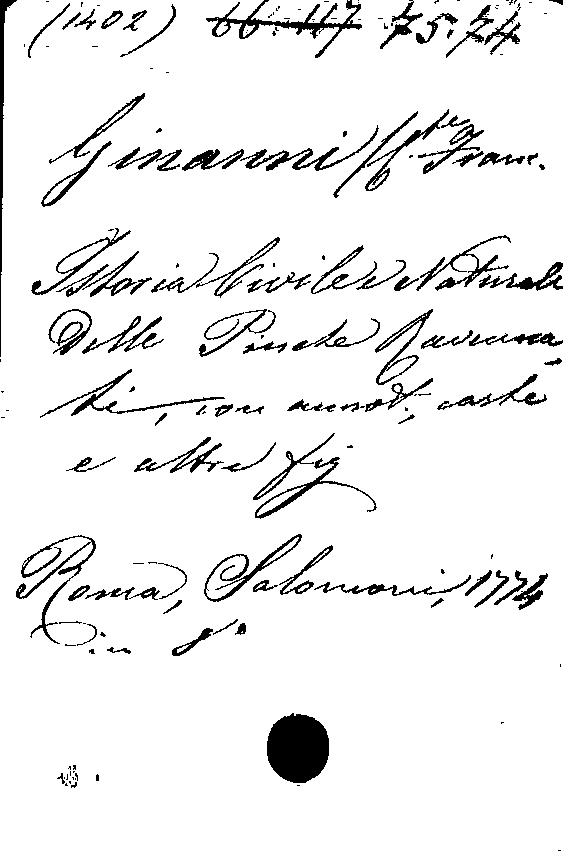 (1402) 66.117 75.74
Ginanni /C.te Franc.
Istoria Civile e Naturale
Delle Pinete Ravenna,
ti, con annot., carte
e altre fig
Roma, Salomoni, 1774
in 4°